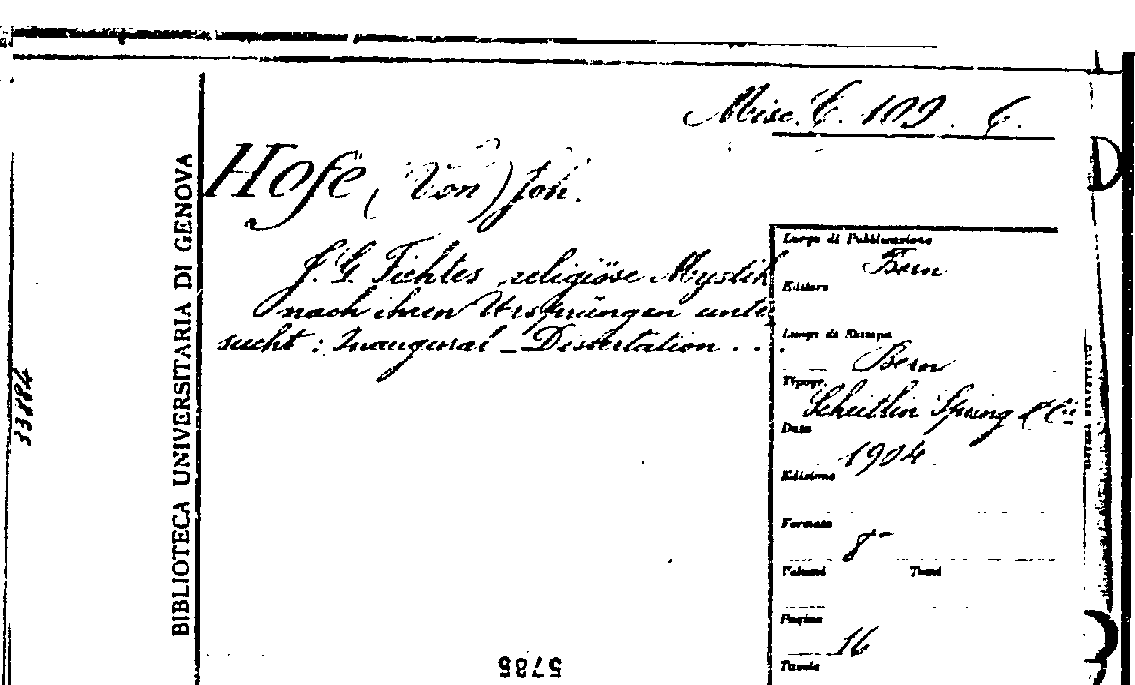 Misc. C. 109. 6.
Hofe (Von) Joh.
J. G. Fichtes religiöse Mystik
nach ihren Ursprüngen unter
sucht: Inaugural-Dissertation ...
BIBLIOTECA UNIVERSITARIA DI GENOVA
33884
Luogo di Pubblicazione
Bern
Editore
Luogo di Stampa
Bern
Tipogr.
Scheitlin Spring & Cie
Data
1904
Edizione
Formato
8°
Volumi Tomi
Pagine
16
Tavole
5786